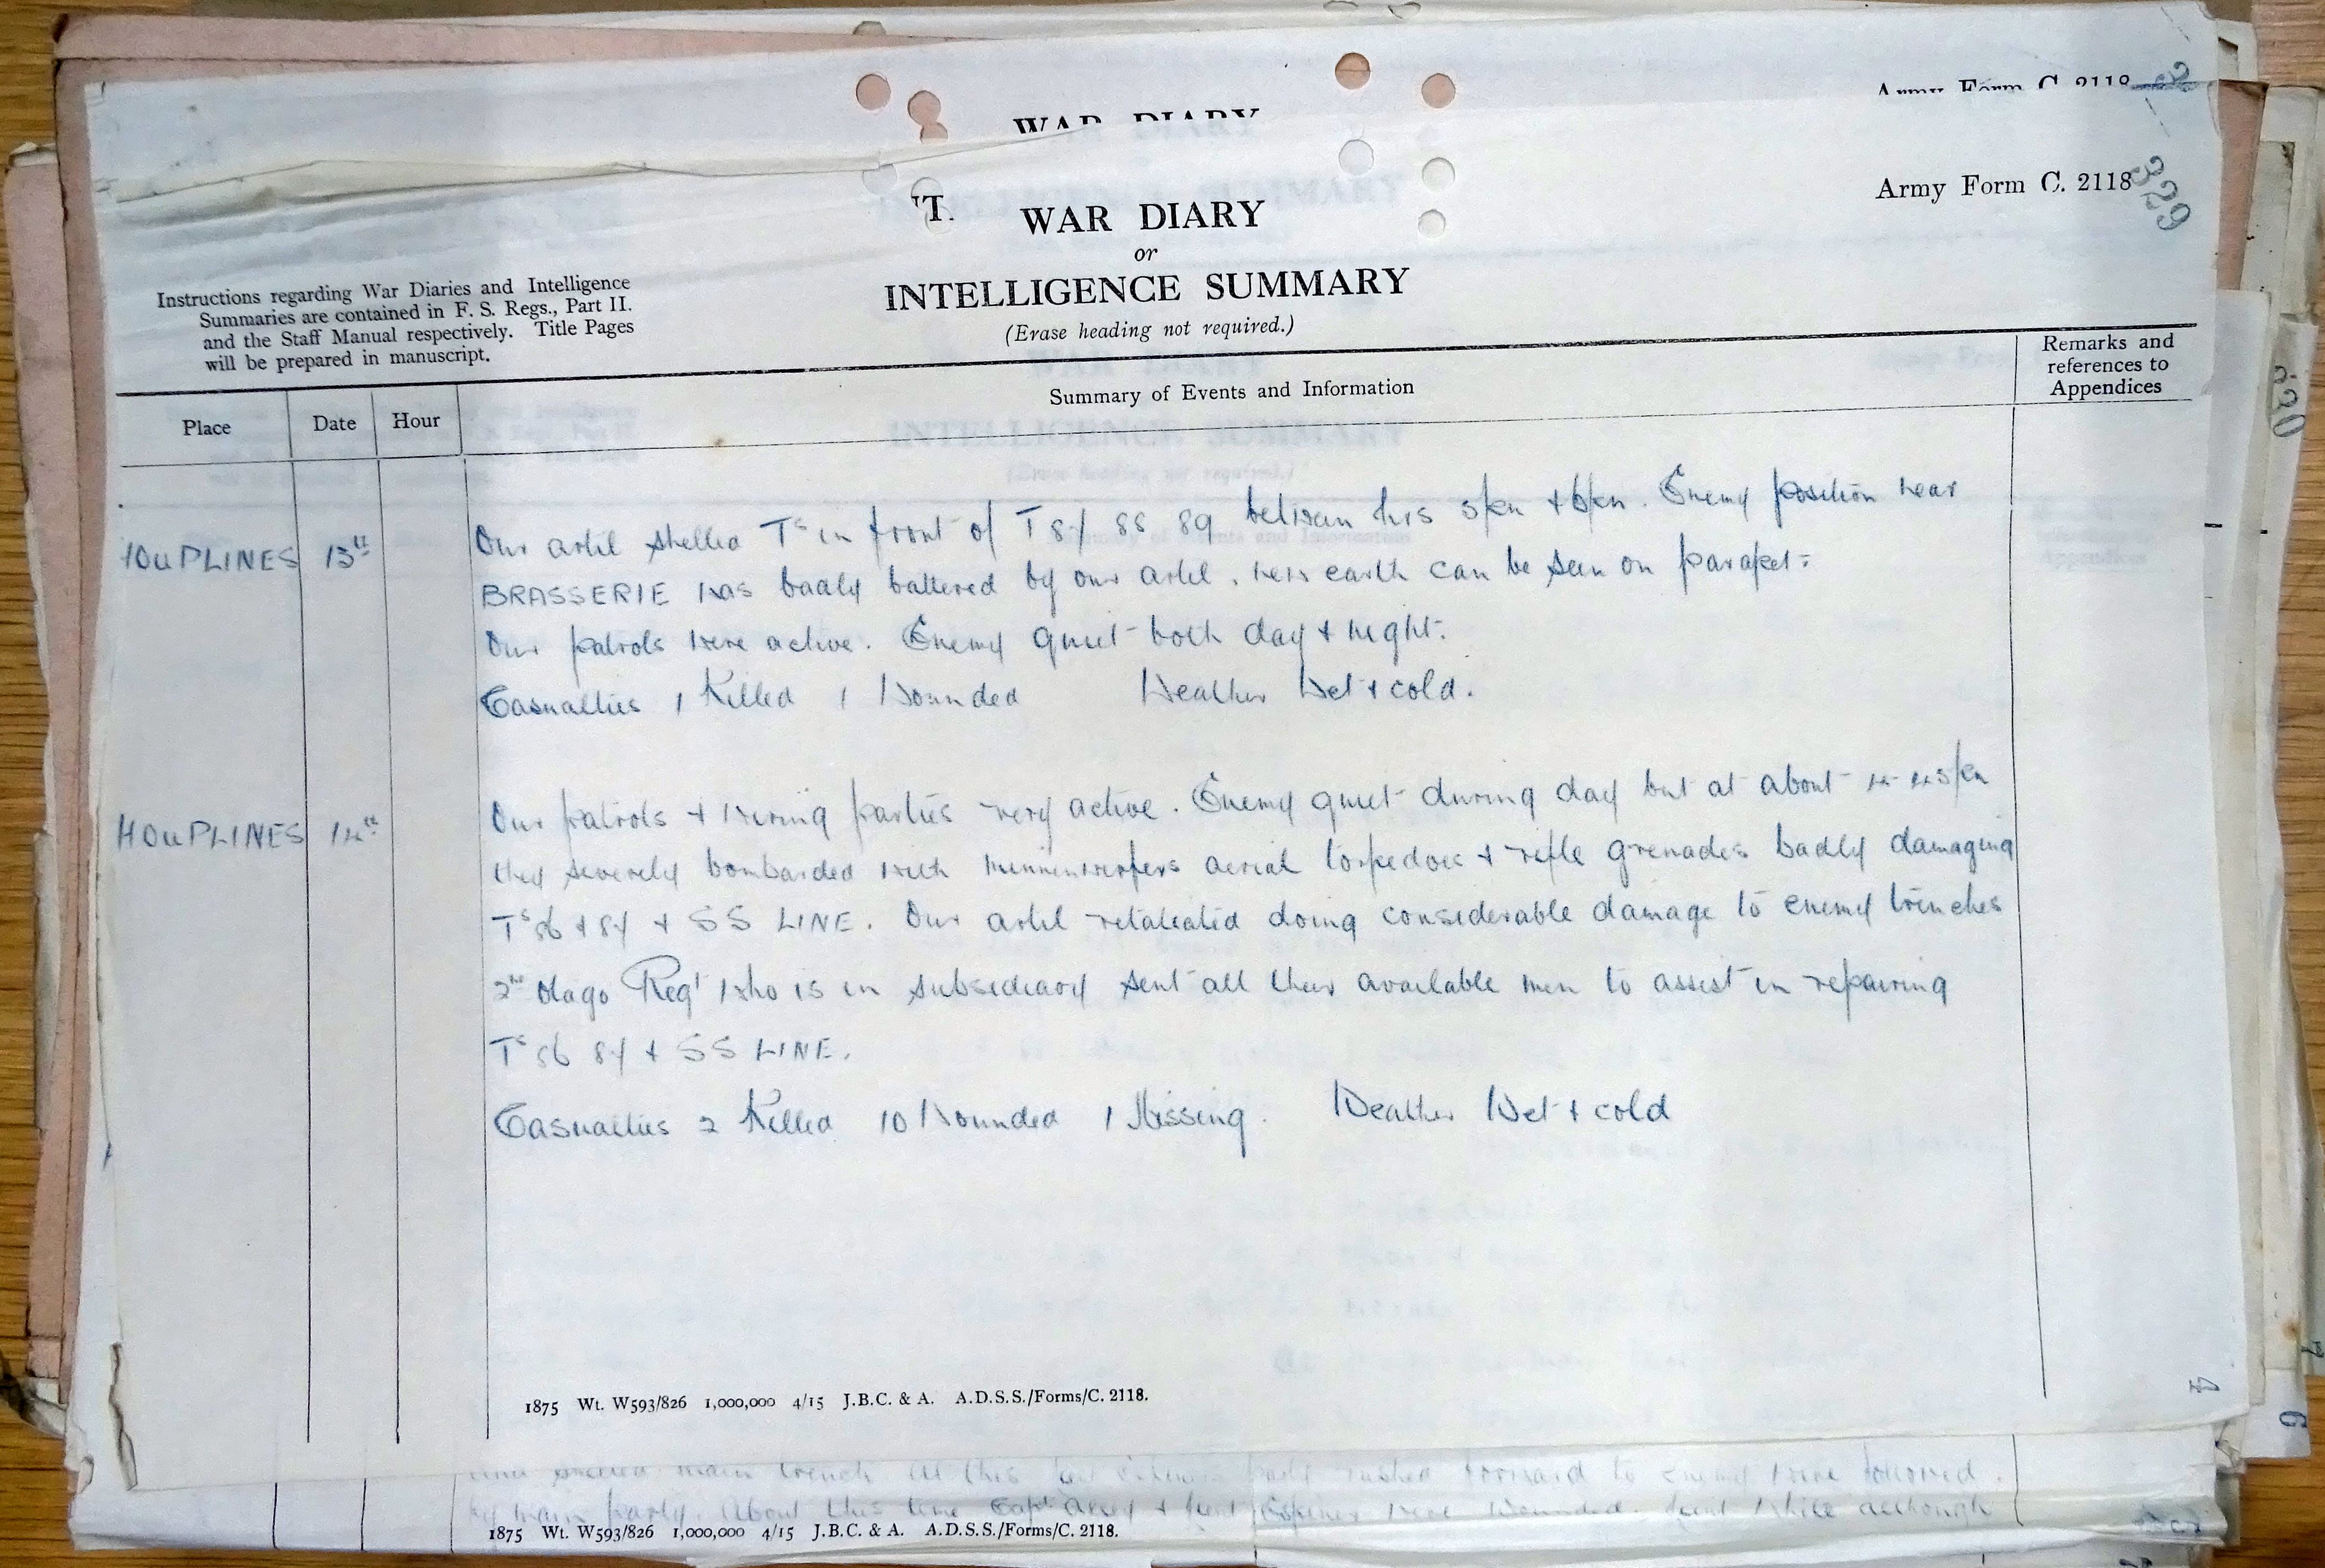 Army Form C. 2118
WAR DIARY
Army Form C. 2118
329
'T.
WAR DIARY
or
INTELLIGENCE SUMMARY
(Erase heading not required.)
Instructions regarding War Diaries and Intelligence
Summaries are contained in F. S. Regs., Part II.
and the Staff Manual respectively. Title Pages
will be prepared in manuscript.
Place
Date
Hour
Summary of Events and Information
Remarks and
references to
Appendices
HOUPLINES 13th
Our artil shelled Ts in front of T 87 88 89 between hrs 5pm + 6pm. Enemy position near
BRASSERIE was badly battered by our artil, new earth can be seen on parapet.
Our patrols were active. Enemy quiet both day + night.
Casualties 1 Killed 1 Wounded Weather Wet + cold.
HOUPLINES 14th
Our patrols + wiring parties very active. Enemy quiet during day but at about 4-45pm
they severely bombarded with minnenwerfers aerial torpedoes + rifle grenades badly damaging
Ts 86 + 87 + SS LINE. Our artil retaliated doing considerable damage to enemy trenches
2nd Otago Regt who is in subsidiary sent all their available men to assist in repairing
Ts 86 87 + SS LINE.
Casualties 2 Killed 10 Wounded 1 Missing. Weather Wet + cold
1875 Wt. W593/826 1,000,000 4/15 J.B.C. & A. A.D.S.S./Forms/C. 2118.
4
main trench at this party rushed forward to enemy wire followed
by main party. About this time Capt + Lieut were Wounded. Lieut White although
1875 Wt. W593/826 1,000,000 4/15 J.B.C. & A. A.D.S.S./Forms/C. 2118.